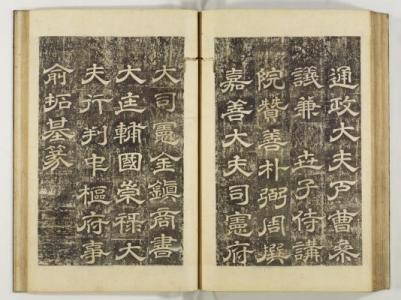 通政大夫戶曹叅
議兼 世子侍講
院贊善朴弼周撰
嘉善大夫司憲府
大司憲金鎭商書
大匡輔國崇祿大
夫行判中樞府事
兪拓基篆